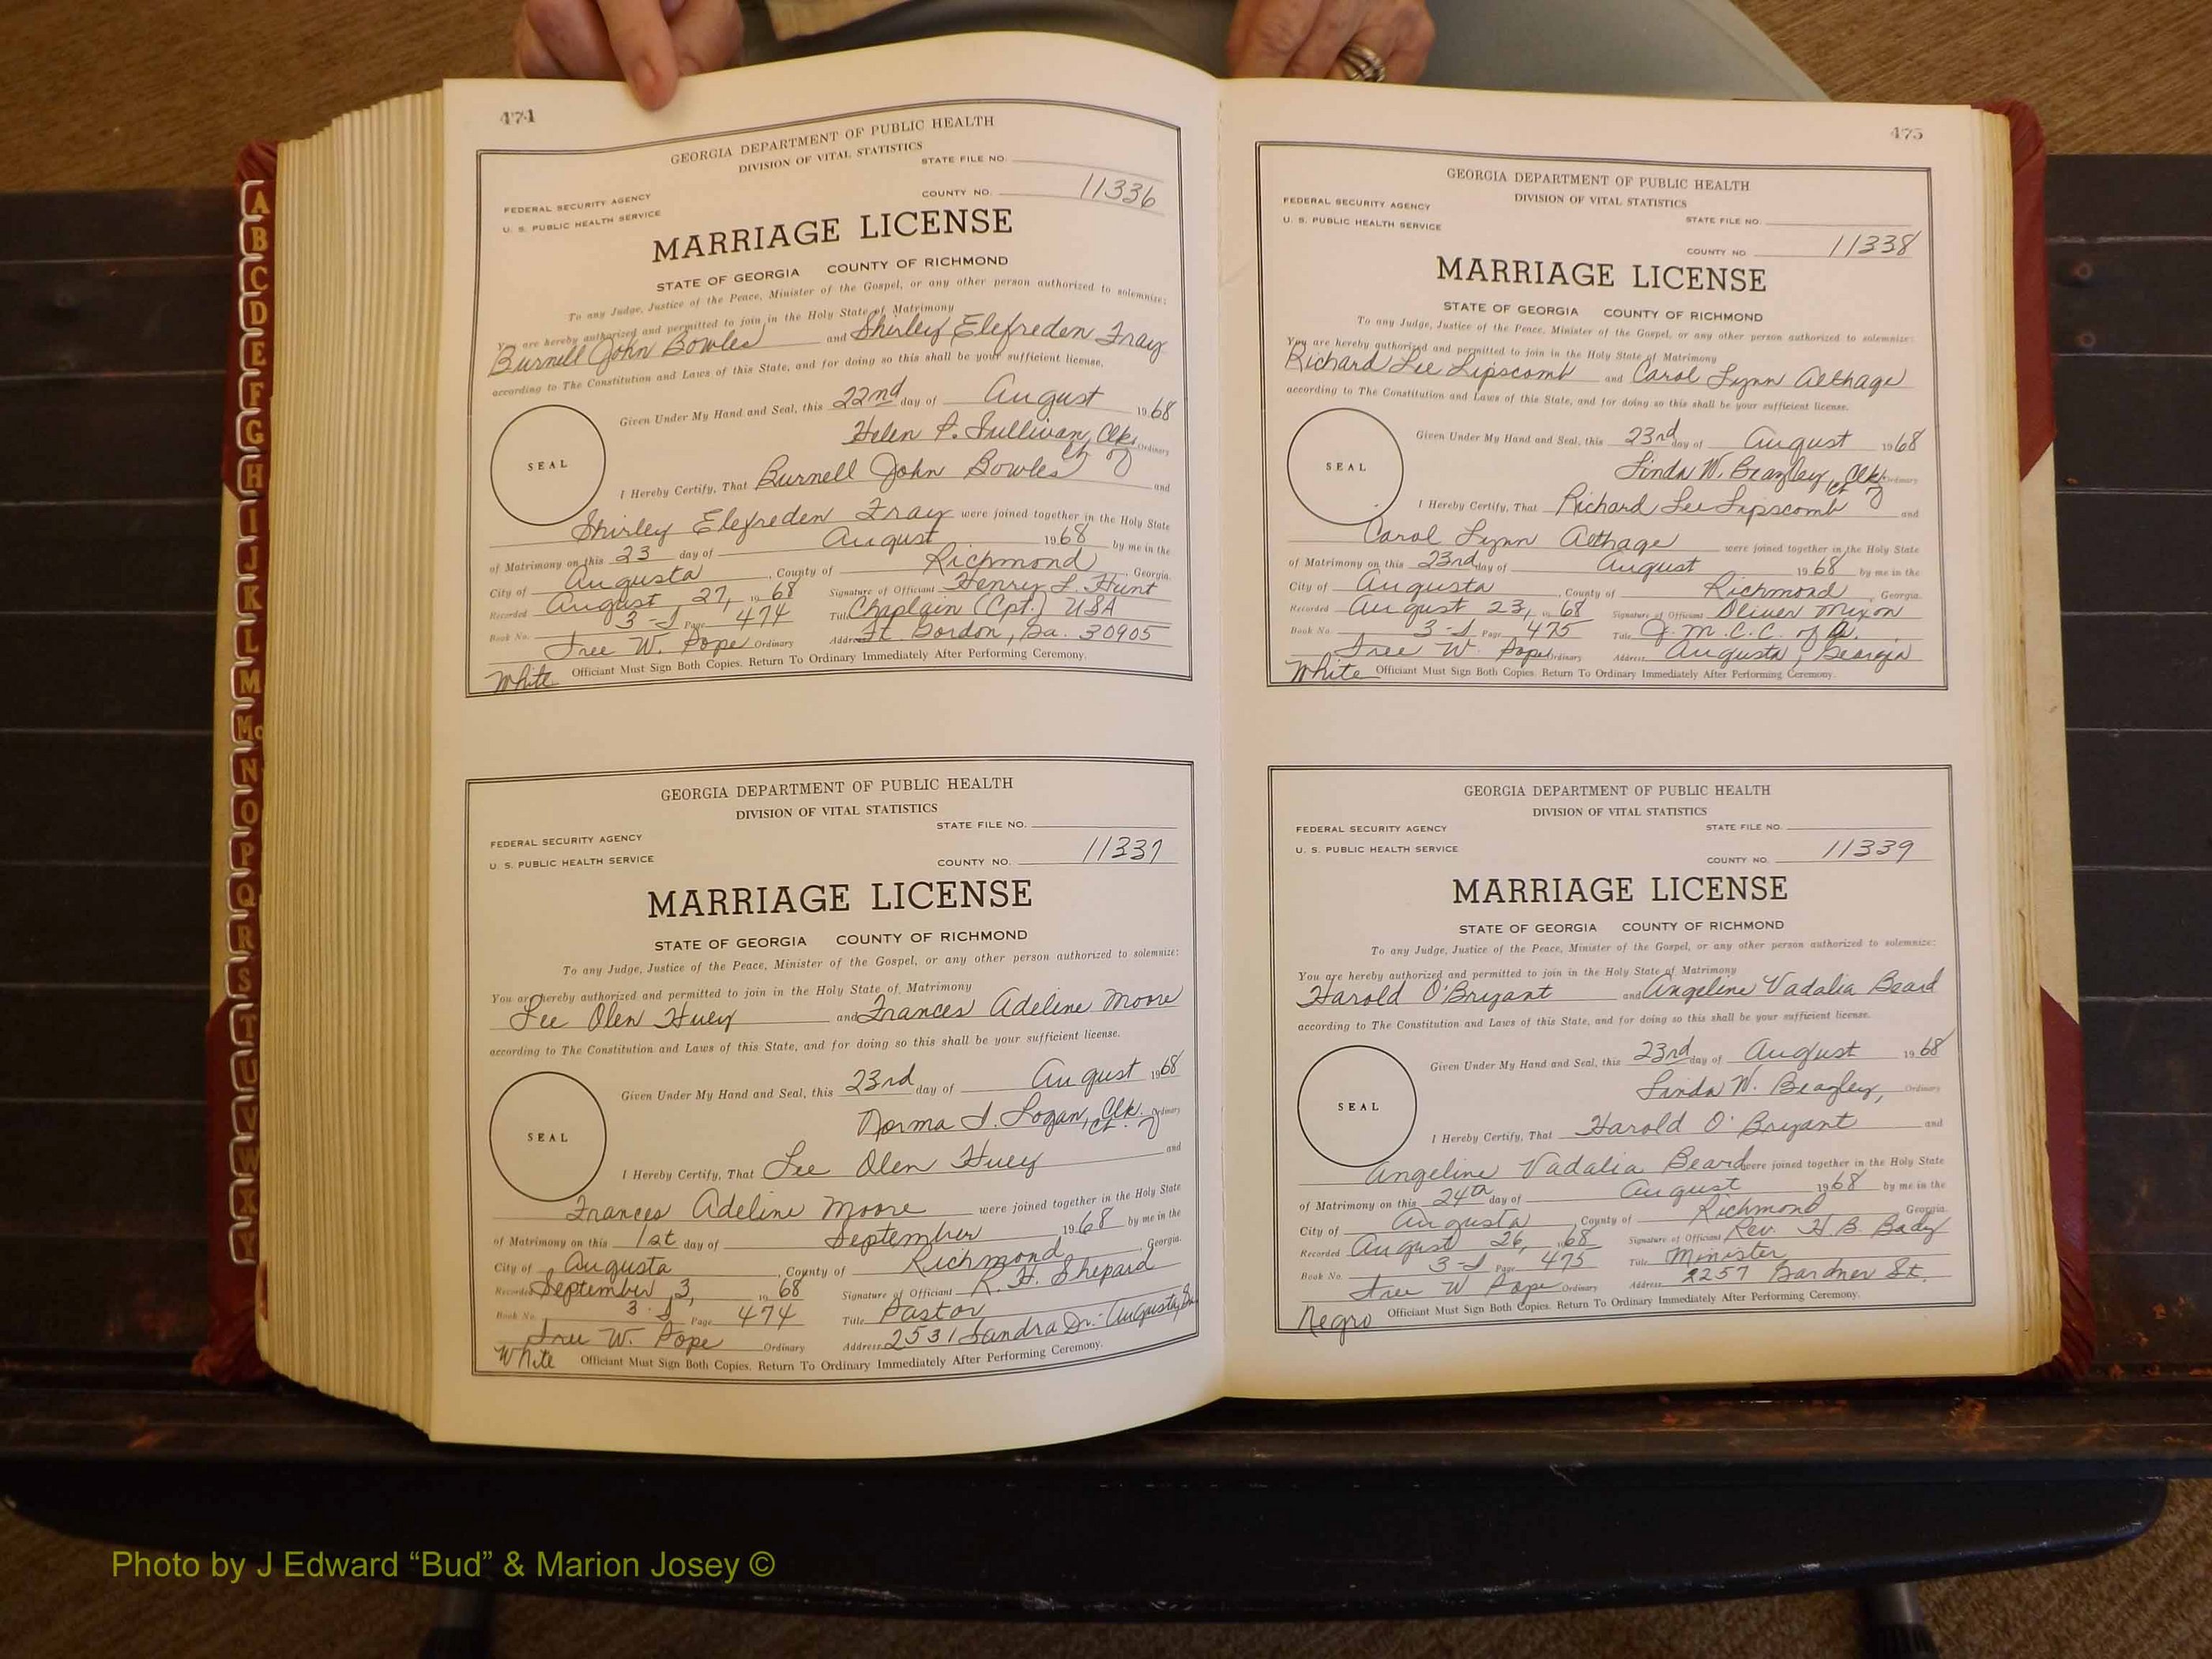 A
B
C
D
E
F
G
H
I
J
K
L
M
Mc
N
O
P
Q
R
S
T
U
V
W
X
Y
474
GEORGIA DEPARTMENT OF PUBLIC HEALTH
DIVISION OF VITAL STATISTICS
STATE FILE NO.
FEDERAL SECURITY AGENCY
U. S. PUBLIC HEALTH SERVICE
COUNTY NO. 11336
MARRIAGE LICENSE
STATE OF GEORGIA COUNTY OF RICHMOND
To any Judge, Justice of the Peace, Minister of the Gospel, or any other person authorized to solemnize:
You are hereby authorized and permitted to join in the Holy State of Matrimony
Burnell John Bowles and Shirley Elefreden Fray
according to The Constitution and Laws of this State, and for doing so this shall be your sufficient license.
Given Under My Hand and Seal, this 22nd day of August 1968
Helen P. Sullivan, Clk. Ordinary
SEAL
I Hereby Certify, That Burnell John Bowles and
Shirley Elefreden Fray were joined together in the Holy State
of Matrimony on this 23 day of August 1968 by me in the
City of Augusta, County of Richmond, Georgia.
Recorded August 27, 1968 Signature of Officiant Henry L. Hunt
Book No. 3-J Page 474 Title Chaplain (Cpt.) USA
Ordinary Address Ft. Gordon, Ga. 30905
Officiant Must Sign Both Copies. Return To Ordinary Immediately After Performing Ceremony.
White
GEORGIA DEPARTMENT OF PUBLIC HEALTH
DIVISION OF VITAL STATISTICS
STATE FILE NO.
FEDERAL SECURITY AGENCY
U. S. PUBLIC HEALTH SERVICE
COUNTY NO. 11337
MARRIAGE LICENSE
STATE OF GEORGIA COUNTY OF RICHMOND
To any Judge, Justice of the Peace, Minister of the Gospel, or any other person authorized to solemnize:
You are hereby authorized and permitted to join in the Holy State of Matrimony
Lee Olen Huey and Frances Adeline Moore
according to The Constitution and Laws of this State, and for doing so this shall be your sufficient license.
Given Under My Hand and Seal, this 23rd day of August 1968
Norma J. Logan, Clk. Ordinary
SEAL
I Hereby Certify, That Lee Olen Huey and
Frances Adeline Moore were joined together in the Holy State
of Matrimony on this 1st day of September 1968 by me in the
City of Augusta, County of Richmond, Georgia.
Recorded September 3, 1968 Signature of Officiant R. H. Shepard
Book No. 3-J Page 474 Title Pastor
W. Pope Ordinary Address 2531 Sandra Dr. - Augusta, Ga
White Officiant Must Sign Both Copies. Return To Ordinary Immediately After Performing Ceremony.
475
GEORGIA DEPARTMENT OF PUBLIC HEALTH
DIVISION OF VITAL STATISTICS
FEDERAL SECURITY AGENCY
U. S. PUBLIC HEALTH SERVICE
STATE FILE NO.
COUNTY NO. 11338
MARRIAGE LICENSE
STATE OF GEORGIA COUNTY OF RICHMOND
To any Judge, Justice of the Peace, Minister of the Gospel, or any other person authorized to solemnize:
You are hereby authorized and permitted to join in the Holy State of Matrimony
Richard Lee Lipscomb and Carol Lynn Aethage
according to The Constitution and Laws of this State, and for doing so this shall be your sufficient license.
Given Under My Hand and Seal, this 23rd day of August 1968
Linda W. Beazley, Clk. Ordinary
SEAL
I Hereby Certify, That Richard Lee Lipscomb and
Carol Lynn Aethage were joined together in the Holy State
of Matrimony on this 23rd day of August 1968 by me in the
City of Augusta, County of Richmond, Georgia.
Recorded August 23, 1968 Signature of Officiant Oliver Mixon
Book No. 3-J Page 475 Title J. M. C. C. of A.
W. Pope Ordinary Address Augusta, Georgia
White Officiant Must Sign Both Copies. Return To Ordinary Immediately After Performing Ceremony.
GEORGIA DEPARTMENT OF PUBLIC HEALTH
DIVISION OF VITAL STATISTICS
FEDERAL SECURITY AGENCY
STATE FILE NO.
U. S. PUBLIC HEALTH SERVICE
COUNTY NO. 11339
MARRIAGE LICENSE
STATE OF GEORGIA COUNTY OF RICHMOND
To any Judge, Justice of the Peace, Minister of the Gospel, or any other person authorized to solemnize:
You are hereby authorized and permitted to join in the Holy State of Matrimony
Harold O'Bryant and Angeline Vadalia Beard
according to The Constitution and Laws of this State, and for doing so this shall be your sufficient license.
Given Under My Hand and Seal, this 23rd day of August 1968
Linda W. Beazley, Ordinary
SEAL
I Hereby Certify, That Harold O'Bryant and
Angeline Vadalia Beard were joined together in the Holy State
of Matrimony on this 24th day of August 1968 by me in the
City of Augusta, County of Richmond Georgia.
Recorded August 26, 1968 Signature of Officiant Rev. H. B. Bady
Book No. 3-J Page 475 Title Minister
W Pope Ordinary Address 2257 Gardner St.
Negro Officiant Must Sign Both Copies. Return To Ordinary Immediately After Performing Ceremony.
Photo by J Edward “Bud” & Marion Josey ©